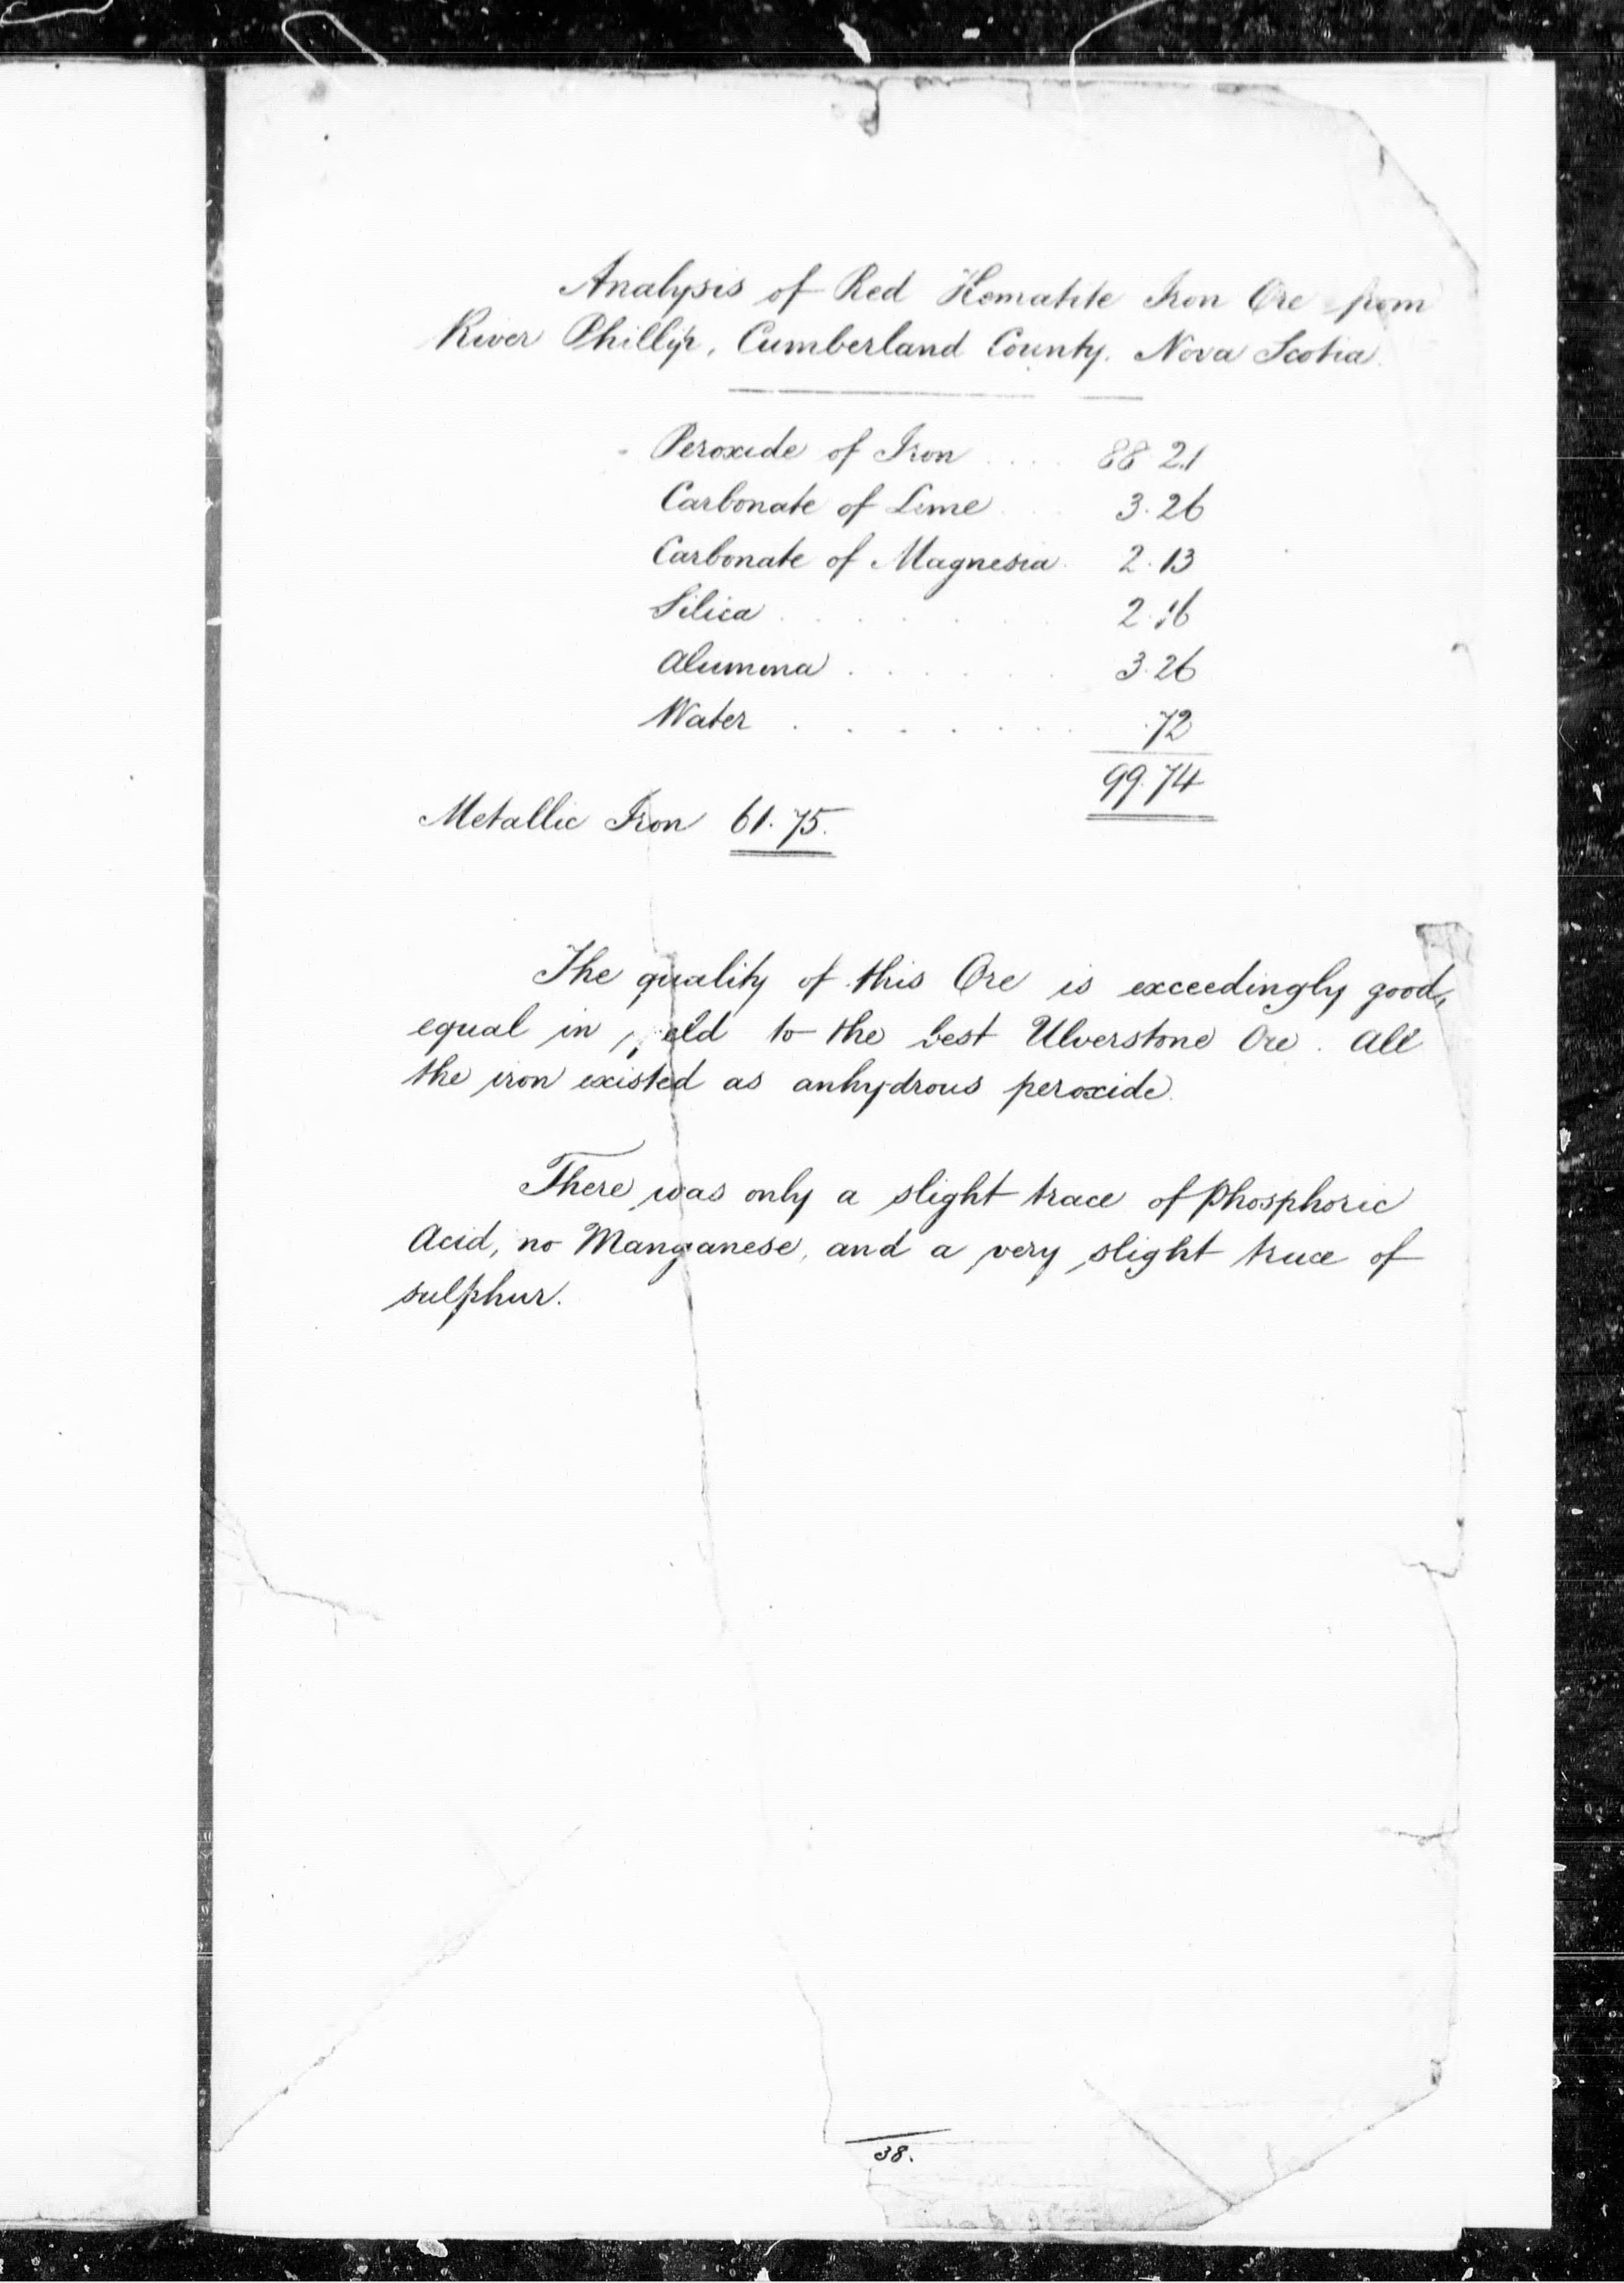 Analysis of Red Hematite Iron Ore from
River Phillip, Cumberland County. Nova Scotia.
Peroxide of Iron .... 88.21
Carbonate of Lime .. 3.26
Carbonate of Magnesia. 2.13
Silica ...... 2.16
Alumina ..... 3.26
Water ...... .72
99.74
Metallic Iron 61.75.
The quality of this Ore is exceedingly good,
equal in yield to the best Ulverstone Ore. All
the iron existed as anhydrous peroxide.
There was only a slight trace of Phosphoric
Acid, no Manganese, and a very slight trace of
sulphur.
38.